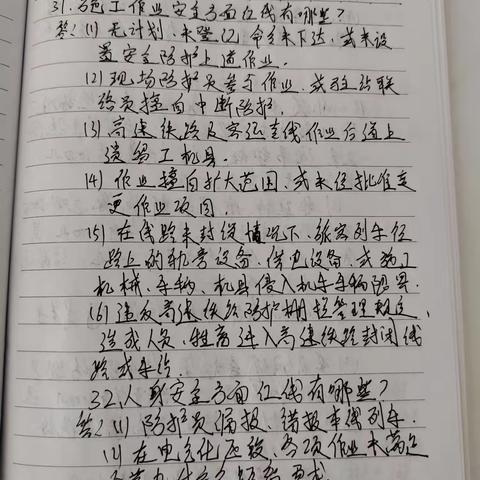 31.施工作业安全方面红线有哪些?
答:(1)无计划、未登记、命令未下达、或未设
置安全防护上道作业.
(2)现场防护员参与作业、或驻站联
络员擅自中断防护.
(3)高速铁路及客运专线作业后道上
遗留工机具.
(4)作业擅自扩大范围、或未经批准变
更作业项目.
(5)在线路未封锁情况下、旅客列车径
路上的轨旁设备、供电设备、或施工
机械、车辆、机具侵入机车车辆限界.
(6)违反高速铁路防护栅栏管理规定,
造成人员、牲畜进入高速铁路封闭线
路或车站.
32.人身安全方面红线有哪些?
答:(1)防护员漏报、错报本线列车.
(2)在电气化区段、各项作业未满足